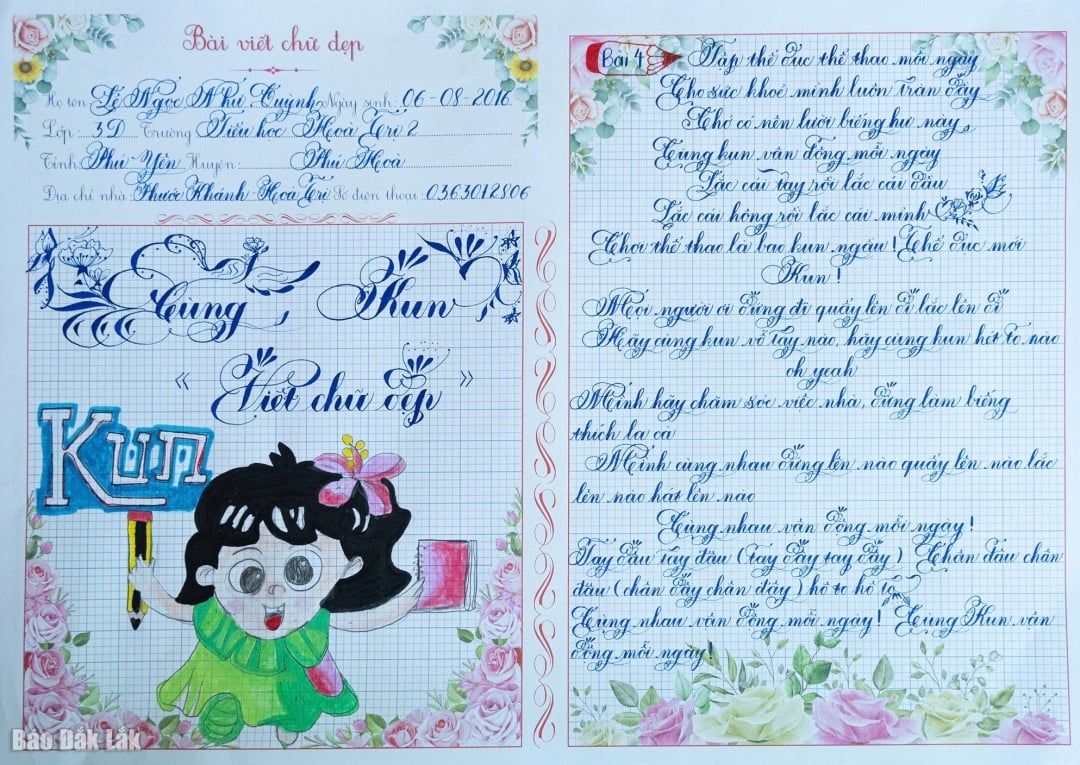 Bài viết chữ đẹp
Họ tên: Lê Ngọc Như Quỳnh Ngày sinh: 06-08-2016
Lớp: 3D Trường Tiểu học Hoà Trị 2
Tỉnh: Phú Yên Huyện: Phú Hoà
Địa chỉ nhà: Phước Khánh Hoà Trị Số điện thoại: 0363012806
Cùng Kun
« Viết chữ đẹp »
Kun
Báo Đắk Lắk
Bài 4 Tập thể dục thể thao mỗi ngày
Cho sức khoẻ mình luôn tràn đầy
Chớ có nên lười biếng hư này
Cùng kun vận động mỗi ngày
Lắc cái tay rồi lắc cái đầu
Lắc cái hông rồi lắc cái mình
Chơi thể thao là bao kun ngầu! Thể dục mới
Kun!
Mọi người ơi đứng đi quẩy lên đi lắc lên đi
Hãy cùng kun vỗ tay nào, hãy cùng kun hét to nào
oh yeah
Mình hãy chăm sóc việc nhà, đừng làm biếng
thích la cà
Mình cùng nhau đứng lên nào quẩy lên nào lắc
lên nào hát lên nào
Cùng nhau vận động mỗi ngày!
Tay đâu tay đâu (tay đây tay đây) Chân đâu chân
đâu (chân đây chân đây) hô to hô to
Cùng nhau vận động mỗi ngày! Cùng Kun vận
động mỗi ngày!